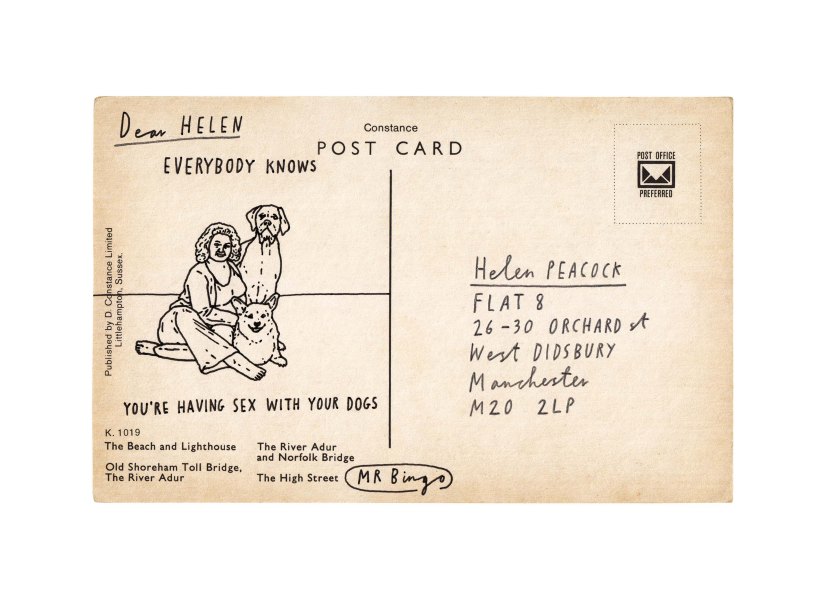 Dear HELEN
EVERYBODY KNOWS
YOU'RE HAVING SEX WITH YOUR DOGS
Published by D. Constance Limited
Littlehampton, Sussex.
K. 1019
The Beach and Lighthouse
Old Shoreham Toll Bridge,
The River Adur
The River Adur
and Norfolk Bridge
The High Street
MR Bingo
Constance
POST CARD
POST OFFICE
PREFERRED
Helen PEACOCK
FLAT 8
26-30 ORCHARD st
West DIDSBURY
Manchester
M20 2LP